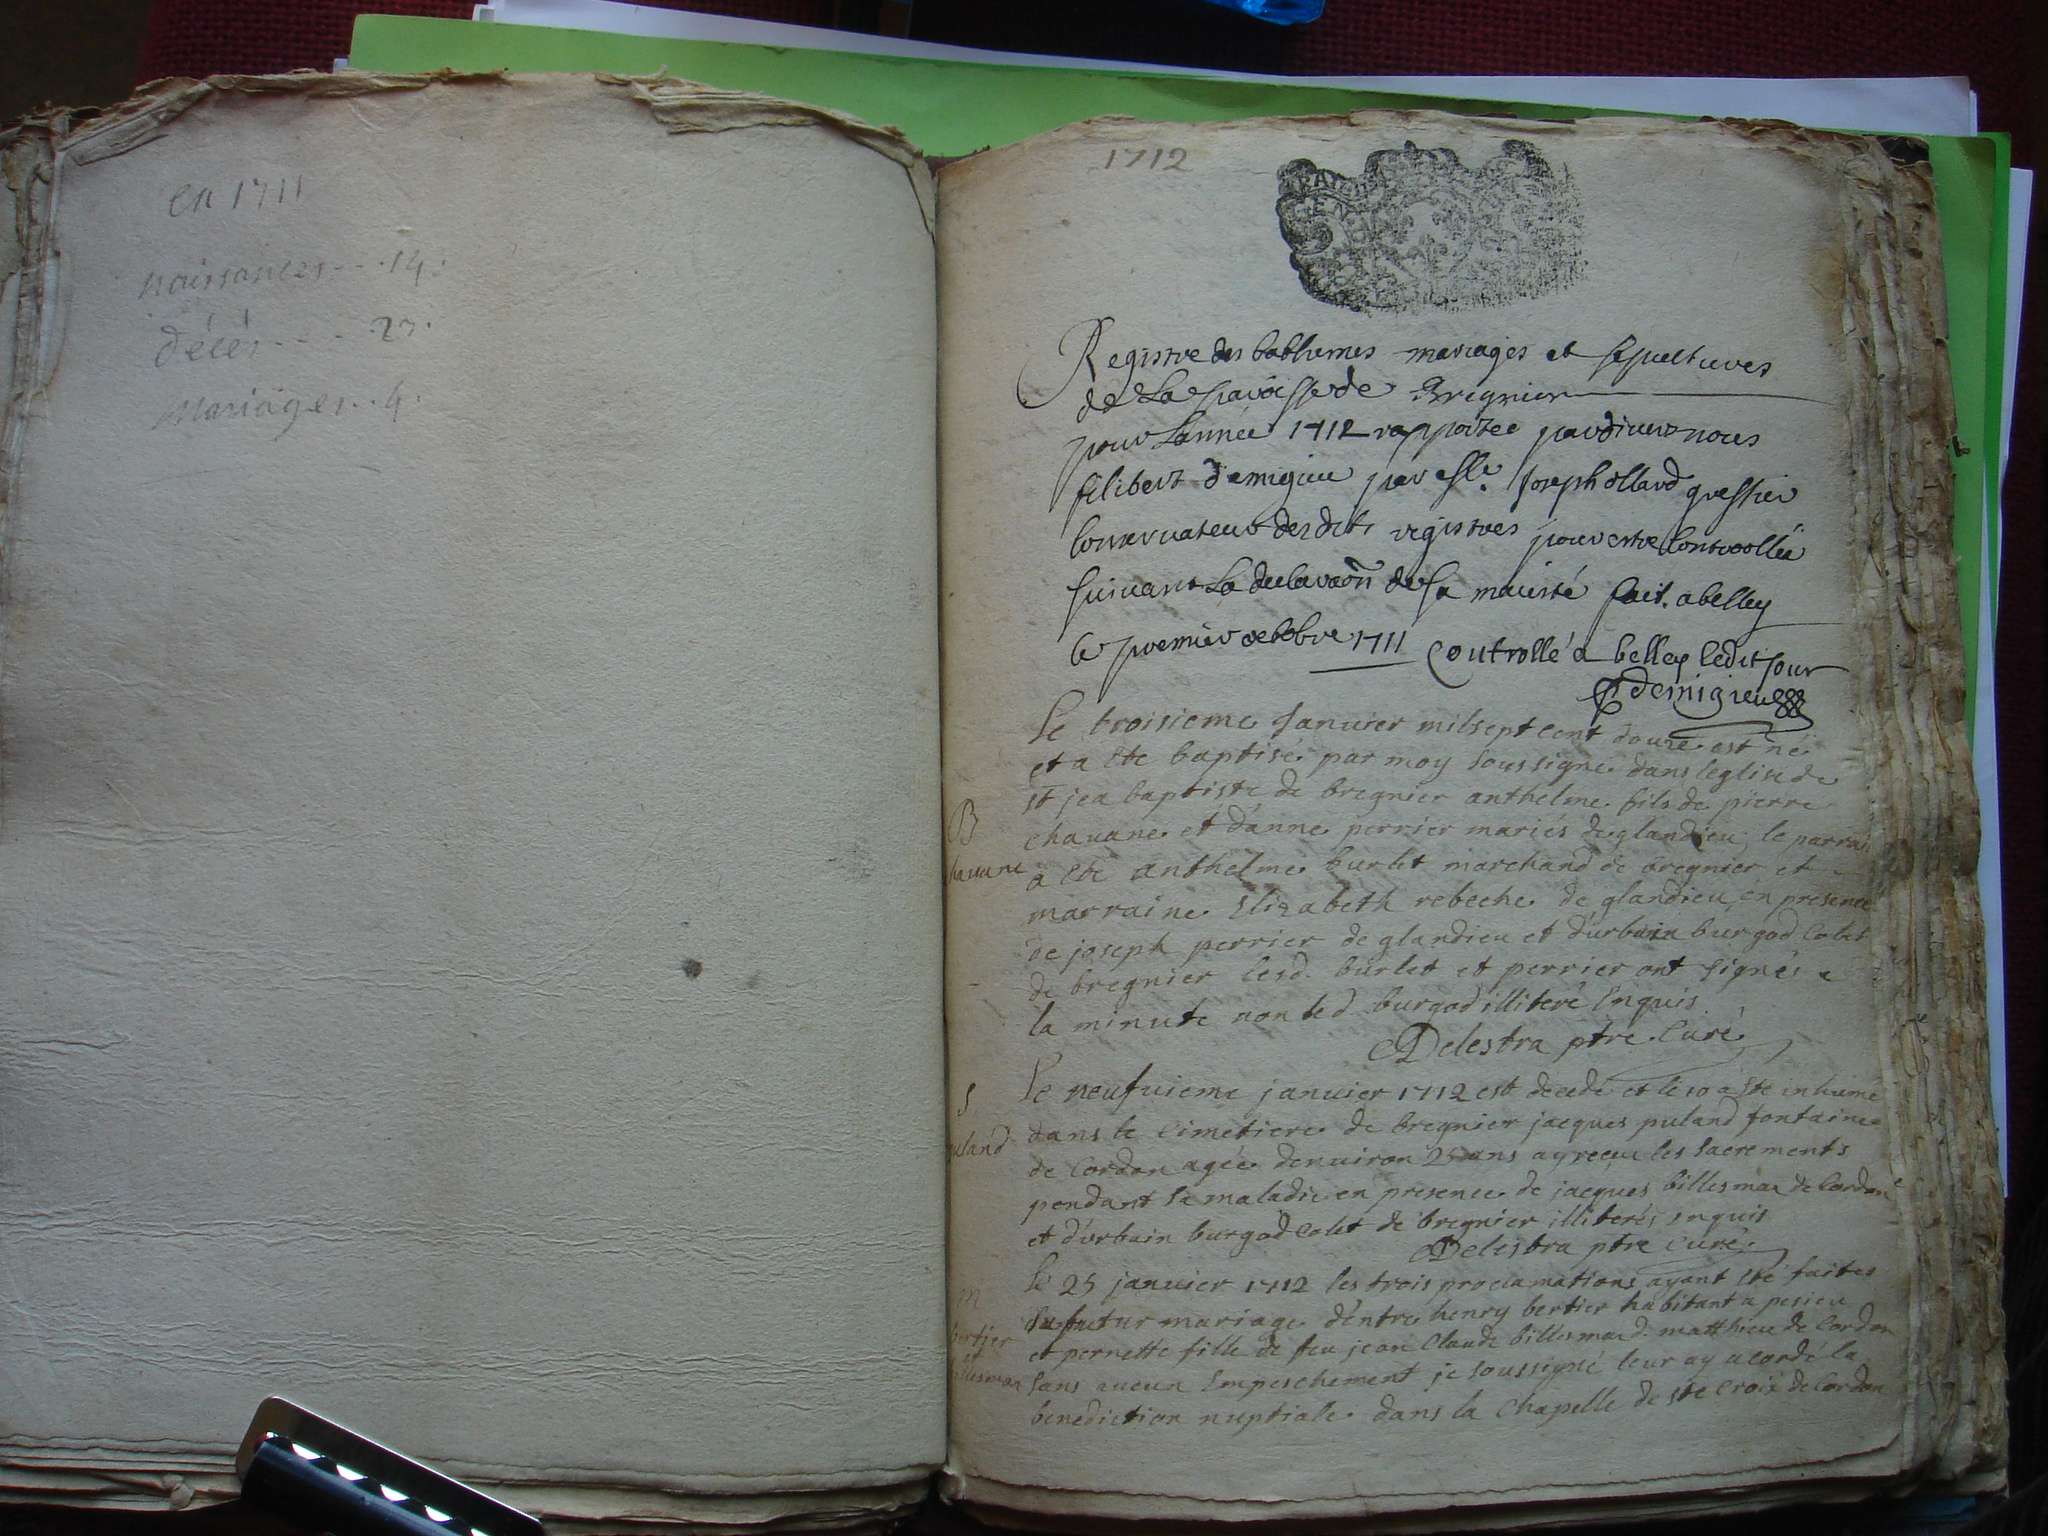 en 1711
naissances - - . 14 .
décès - - - - . 23 .
Mariages . . 4 .
1712
Registre des bathemes mariages et sepultures
de La paroisse de Bregnier
pour Lannée 1712 rapportée pardivant nous
filibert demigieu par Joseph ollard greffier
Conservateur desdits registres pour estre Controollée
suivant La declaraon de Sa maiesté fait a belley
le premier octobre 1711 Controllé a belley ledit jour
demigieu
Le troisieme Janvier mil sept cent douze est né
et a ete baptisé par moy soussigné dans leglise de
st jea baptiste de bregnier anthelme fils de pierre
chauane et d'anne perrier mariés de glandieu le parrai
B
chauane
a ete anthelme burlet marchand de bregnier et
marraine Elizabeth rebeche de glandieu en presence
de joseph perrier de glandieu et d'urbain burgod Colet
de bregnier lesd. burlet et perrier ont signés a
la minute non led burgod illiteré Enquis
Delestra ptre Curé
S
puland
Le neufuieme januier 1712 est decedé et le 10 a Ete inhumé
dans le cimetiere de bregnier jacques puland fontaine
de Cordon agée denuiron 25 ans ay receu les sacrements
pendant sa maladie en presence de jacques billesmaz de Cordon
et d'urbain burgod Colet de bregnier illiterés enquis
Delestra ptre curé
M
bertier
et
billesmaz
Le 25 janvier 1712 les trois proclamations ayant Eté faites
du futur mariage d'entre henry bertier habitant a pesieu
et pernette fille de feu jean Claude billesmard matthieu de Cordon
sans aucun Empeschement je soussigné leur ay acordé la
benediction nuptiale dans la Chapelle de ste Croix de Cordon